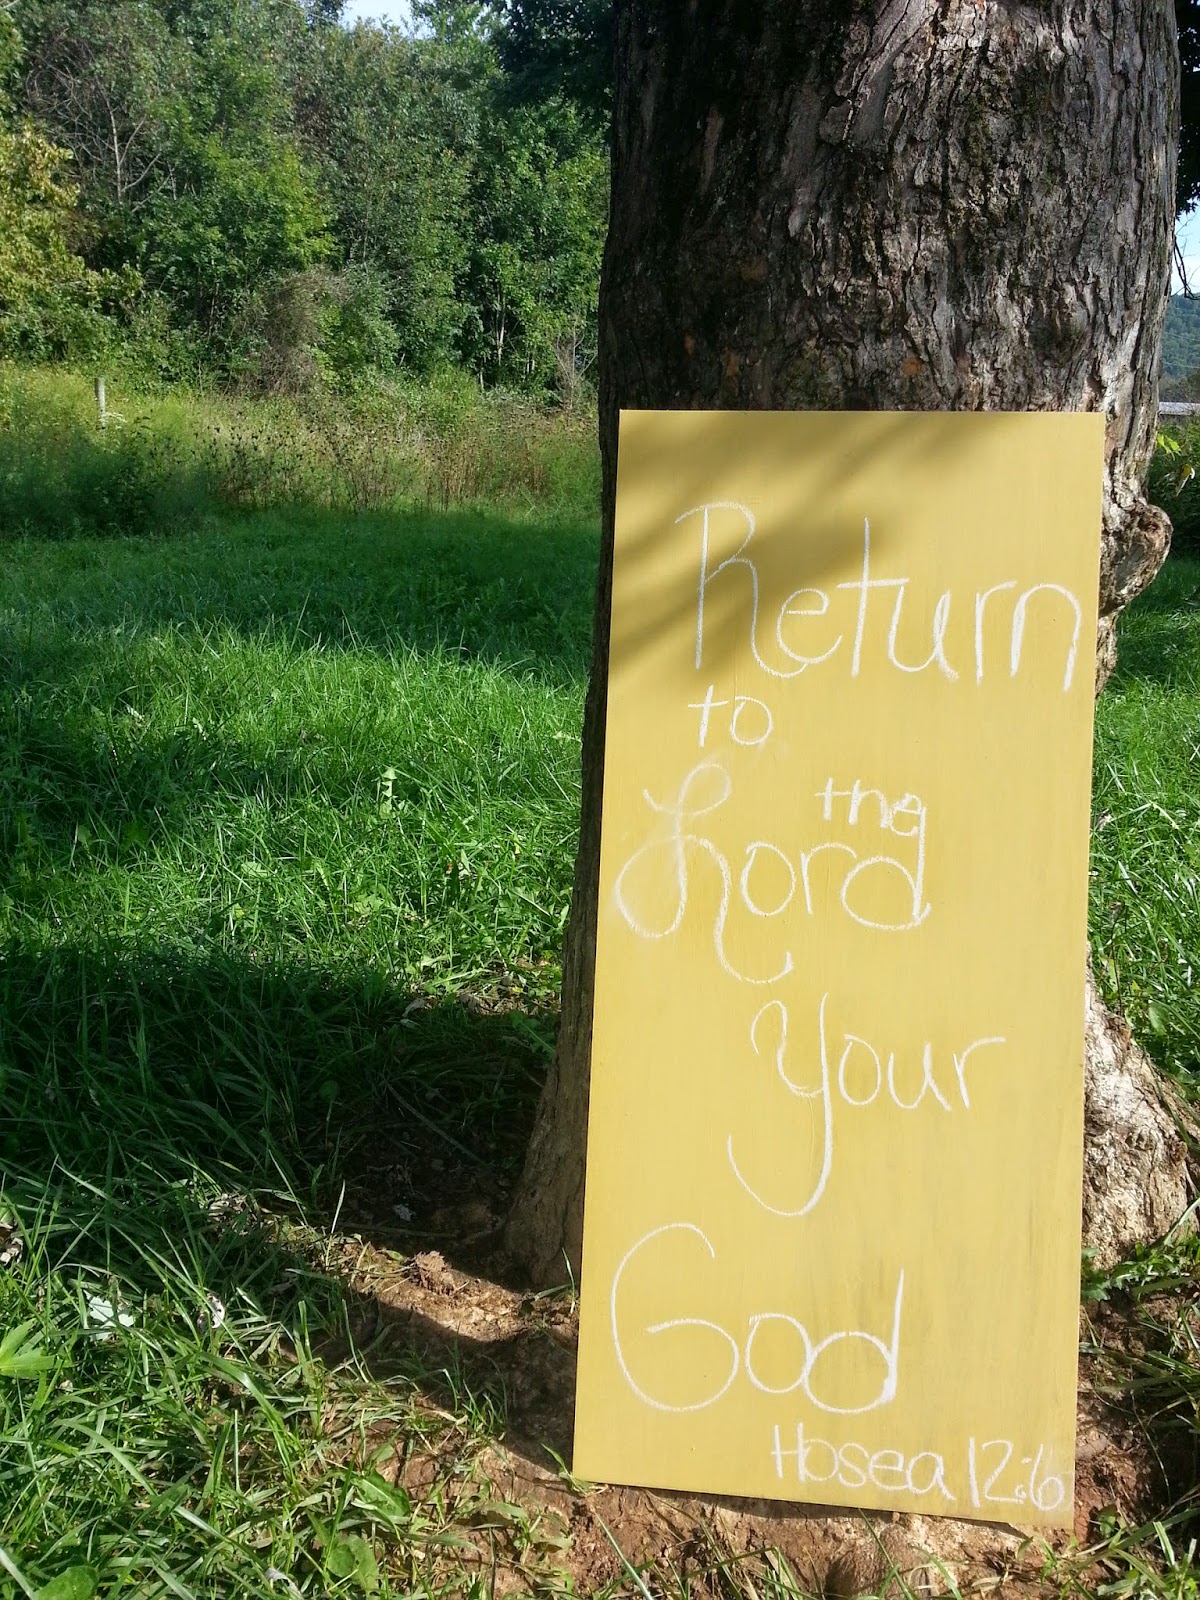 Return
to
the
Lord
Your
God
Hosea 12:6